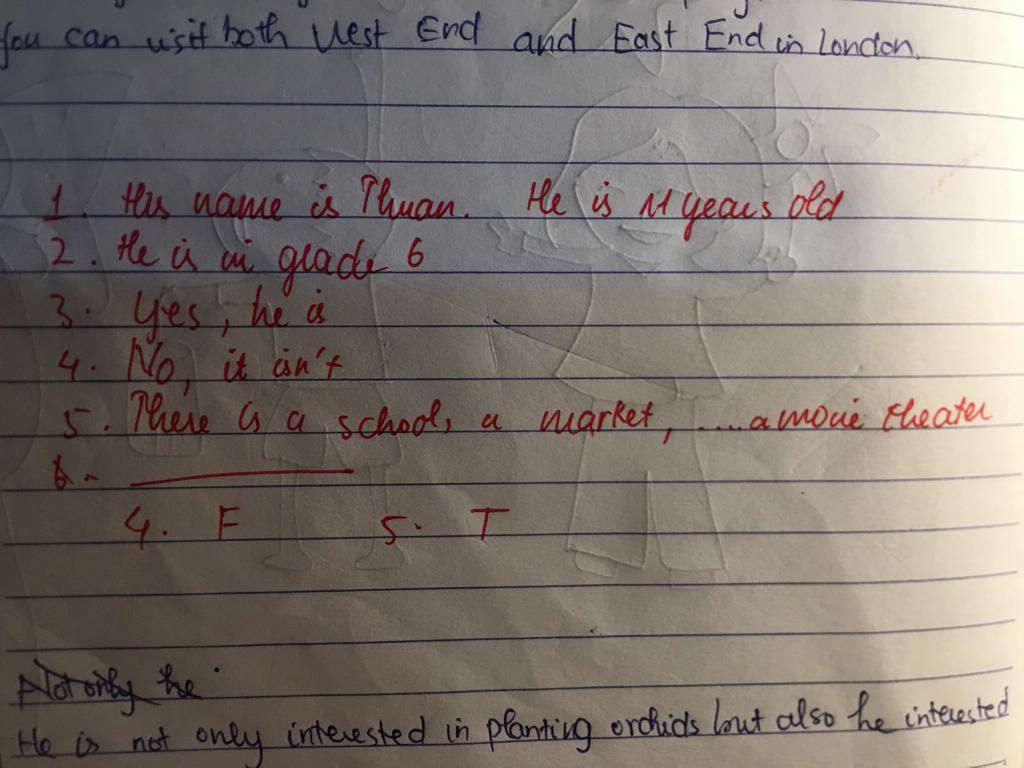 You can visit both West End and East End in London.
1. His name is Thuan. He is 11 years old
2. He is in glade 6
3. Yes, he is
4. No, it isn't
5. There is a school, a market, .... a movie theater
6.
4. F 5. T
Not only the
He is not only interested in planting orchids but also he interested